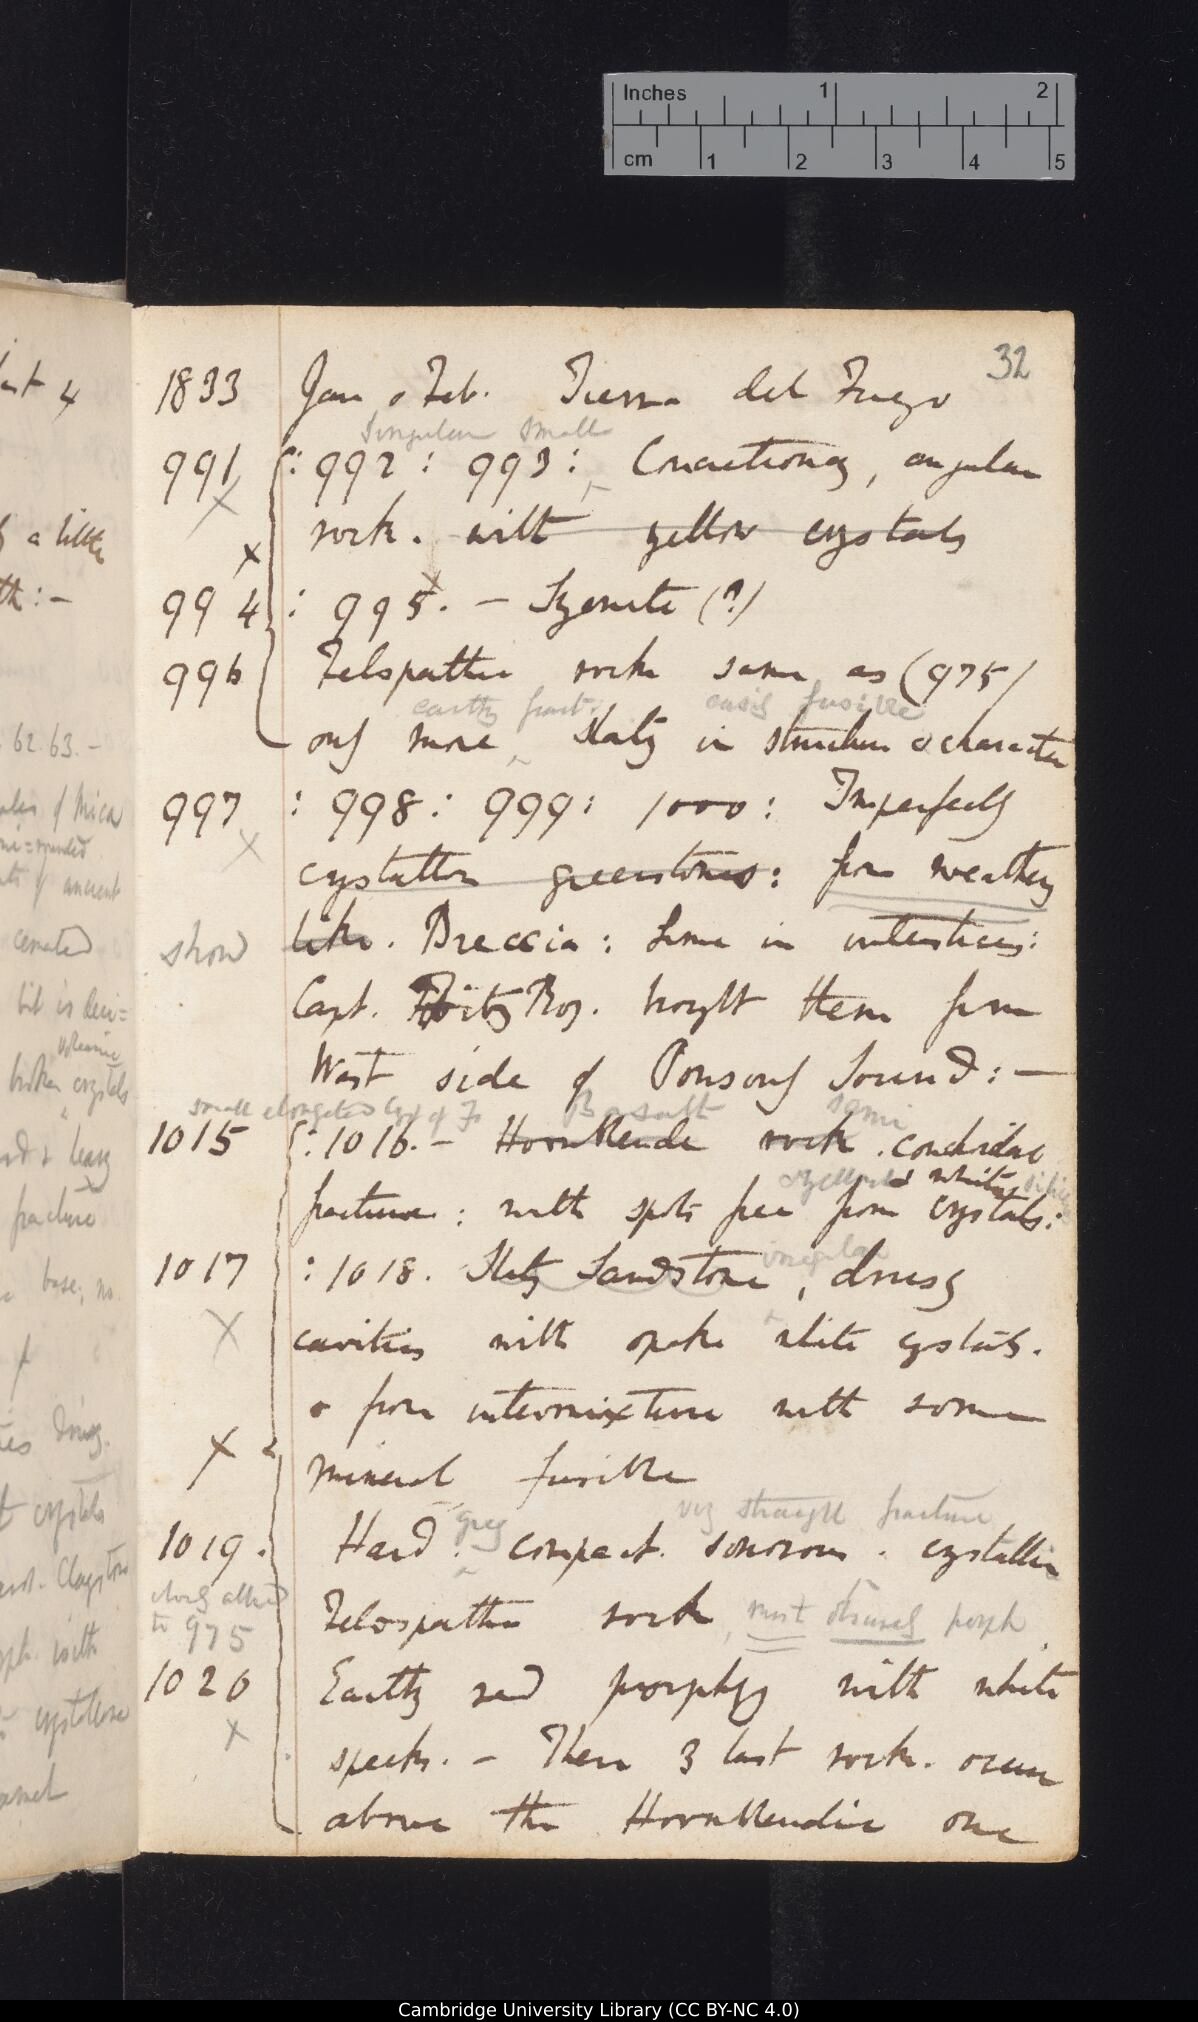 Inches 1 2
cm 1 2 3 4 5
32
1833 Jan & Feb. Tierra del Fuego
singular small
991 : 992 : 993 : Concretionary, angular
rock. with yellow crystals
994 : 995. — Syenite (?)
996 Felspathic rock same as (975)
earthy fract: easily fusible
only more slaty in structure & character
997 : 998 : 999 : 1000 : Imperfectly
crystalline greenstones: from weathering
show like. Breccia : Lime in interstices:
Capt. FitzRoy. brought them from
West side of Ponsonby Sound : —
small elongated Cryst of Basalt semi
1015 : 1016. — Hornblende rock . conchoidal
& white
fracture : with spots free from crystals:
irregular
1017 : 1018. Slaty Sandstone, drusy
cavities with opake white crystals.
& from intermixture with some
mineral fusible
grey very straight fracture
1019. Hard . compact. sonorous . crystalline
closely allied
to 975
Felspathic rock, most obscurely porph
1020 Earthy red porphyry with white
specks. — These 3 last rocks. occur
above the Hornblendic one
62 63. —
a little
of Mica
ancient
broken crystals
fracture
base; no
crystals
with
Cambridge University Library (CC BY-NC 4.0)